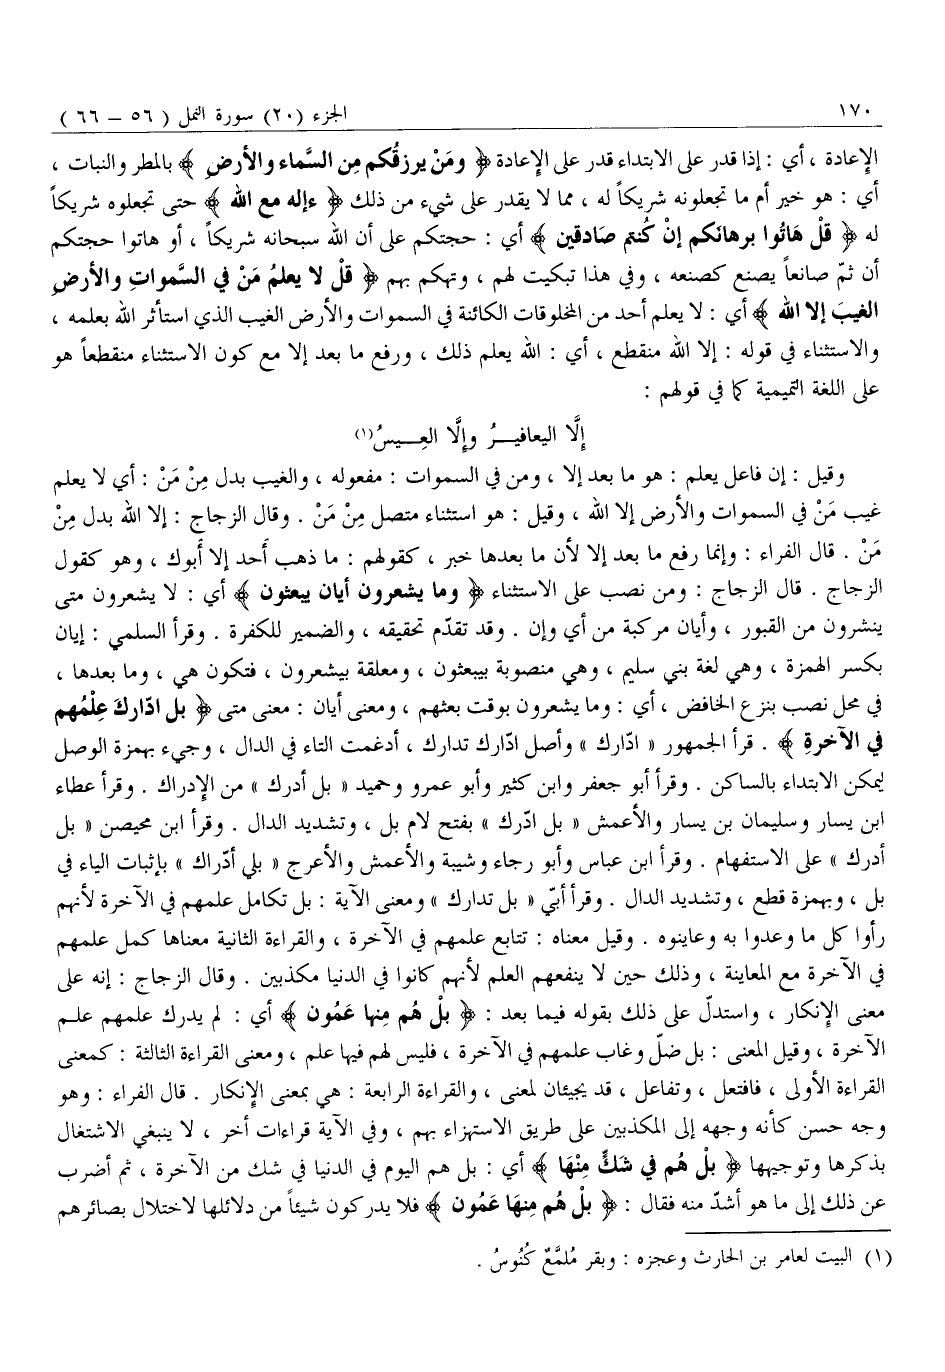 ١٧٠ الجزء (٢٠) سورة النمل ( ٥٦ – ٦٦ )
الإعادة ، أي : إذا قدر على الابتداء قدر على الإعادة ﴿ ومَنْ يرزقُكم مِن السَّماء والأرضِ ﴾ بالمطر والنبات ،
أي : هو خير أم ما تجعلونه شريكاً له ، مما لا يقدر على شيء من ذلك ﴿ ءإله مع الله ﴾ حتى تجعلوه شريكاً
له ﴿ قلْ هَاتُوا برهانَكم إنْ كُنتم صادقين ﴾ أي : حجتكم على أن الله سبحانه شريكاً ، أو هاتوا حجتكم
أن ثمّ صانعاً يصنع كصنعه ، وفي هذا تبكيت لهم ، وتهكم بهم ﴿ قلْ لا يعلمُ مَنْ في السَّمواتِ والأرضِ
الغيبَ إلا الله ﴾ أي : لا يعلم أحد من المخلوقات الكائنة في السموات والأرض الغيب الذي استأثر الله بعلمه ،
والاستثناء في قوله : إلا الله منقطع ، أي : الله يعلم ذلك ، ورفع ما بعد إلا مع كون الاستثناء منقطعاً هو
على اللغة التميمية كما في قولهم :
إلَّا اليعافيـرُ وإلَّا العِـيسُ(١)
وقيل : إن فاعل يعلم : هو ما بعد إلا ، ومن في السموات : مفعوله ، والغيب بدل مِنْ مَنْ : أي لا يعلم
غيب مَنْ في السموات والأرض إلا الله ، وقيل : هو استثناء متصل مِنْ مَنْ . وقال الزجاج : إلا الله بدل مِنْ
مَنْ . قال الفراء : وإنما رفع ما بعد إلا لأن ما بعدها خبر ، كقولهم : ما ذهب أحد إلا أبوك ، وهو كقول
الزجاج . قال الزجاج : ومن نصب على الاستثناء ﴿ وما يشعرون أيان يبعثون ﴾ أي : لا يشعرون متى
ينشرون من القبور ، وأيان مركبة من أي وإن . وقد تقدّم تحقيقه ، والضمير للكفرة . وقرأ السلمي : إيان
بكسر الهمزة ، وهي لغة بني سليم ، وهي منصوبة بيبعثون ، ومعلقة بيشعرون ، فتكون هي ، وما بعدها ،
في محل نصب بنزع الخافض ، أي : وما يشعرون بوقت بعثهم ، ومعنى أيان : معنى متى ﴿ بل ادّاركَ عِلْمُهم
في الآخرةِ ﴾ . قرأ الجمهور « ادّارك » وأصل ادّارك تدارك ، أدغمت التاء في الدال ، وجيء بهمزة الوصل
ليمكن الابتداء بالساكن . وقرأ أبو جعفر وابن كثير وأبو عمرو وحميد « بل أدرك » من الإدراك . وقرأ عطاء
ابن يسار وسليمان بن يسار والأعمش « بل ادّرك » بفتح لام بل ، وتشديد الدال . وقرأ ابن محيصن « بل
أدرك » على الاستفهام . وقرأ ابن عباس وأبو رجاء وشيبة والأعمش والأعرج « بلي أدّراك » بإثبات الياء في
بل ، وبهمزة قطع ، وتشديد الدال . وقرأ أبيّ « بل تدارك » ومعنى الآية : بل تكامل علمهم في الآخرة لأنهم
رأوا كل ما وعدوا به وعاينوه . وقيل معناه : تتابع علمهم في الآخرة ، والقراءة الثانية معناها كمل علمهم
في الآخرة مع المعاينة ، وذلك حين لا ينفعهم العلم لأنهم كانوا في الدنيا مكذبين . وقال الزجاج : إنه على
معنى الإنكار ، واستدلّ على ذلك بقوله فيما بعد : ﴿ بلْ هُم مِنها عَمُون ﴾ أي : لم يدرك علمهم علـم
الآخرة ، وقيل المعنى : بل ضلّ وغاب علمهم في الآخرة ، فليس لهم فيها علم ، ومعنى القراءة الثالثة : كمعنى
القراءة الأولى ، فافتعل ، وتفاعل ، قد يجيئان لمعنى ، والقراءة الرابعة : هي بمعنى الإنكار . قال الفراء : وهو
وجه حسن كأنه وجهه إلى المكذبين على طريق الاستهزاء بهم ، وفي الآية قراءات أخر ، لا ينبغي الاشتغال
بذكرها وتوجيهها ﴿ بلْ هُم في شَكٍّ مِنْهَا ﴾ أي : بل هم اليوم في الدنيا في شك من الآخرة ، ثم أضرب
عن ذلك إلى ما هو أشدّ منه فقال : ﴿ بلْ هُم مِنهَا عَمُون ﴾ فلا يدركون شيئاً من دلائلها لاختلال بصائرهم
(١) البيت لعامر بن الحارث وعجزه : وبقر مُلمَّعٌ كُنُوسُ .